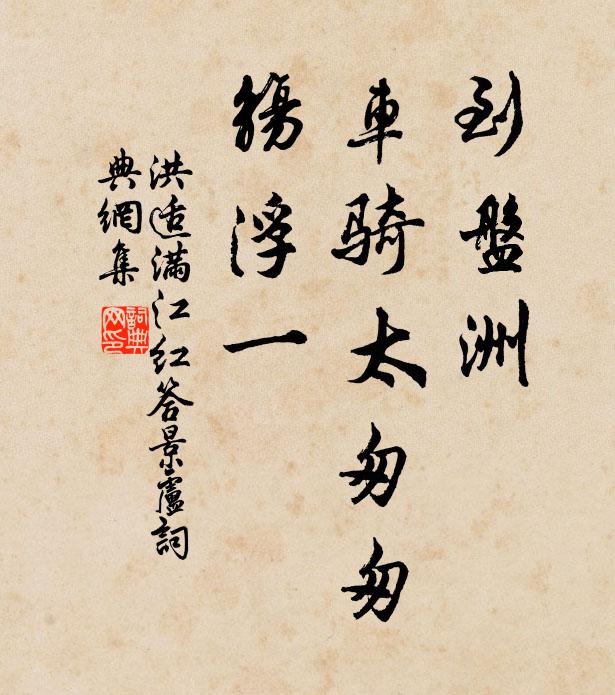 到盤洲
車騎太匆匆
觴浮一
洪适滿江紅答景盧詞
典網集
詞典網印